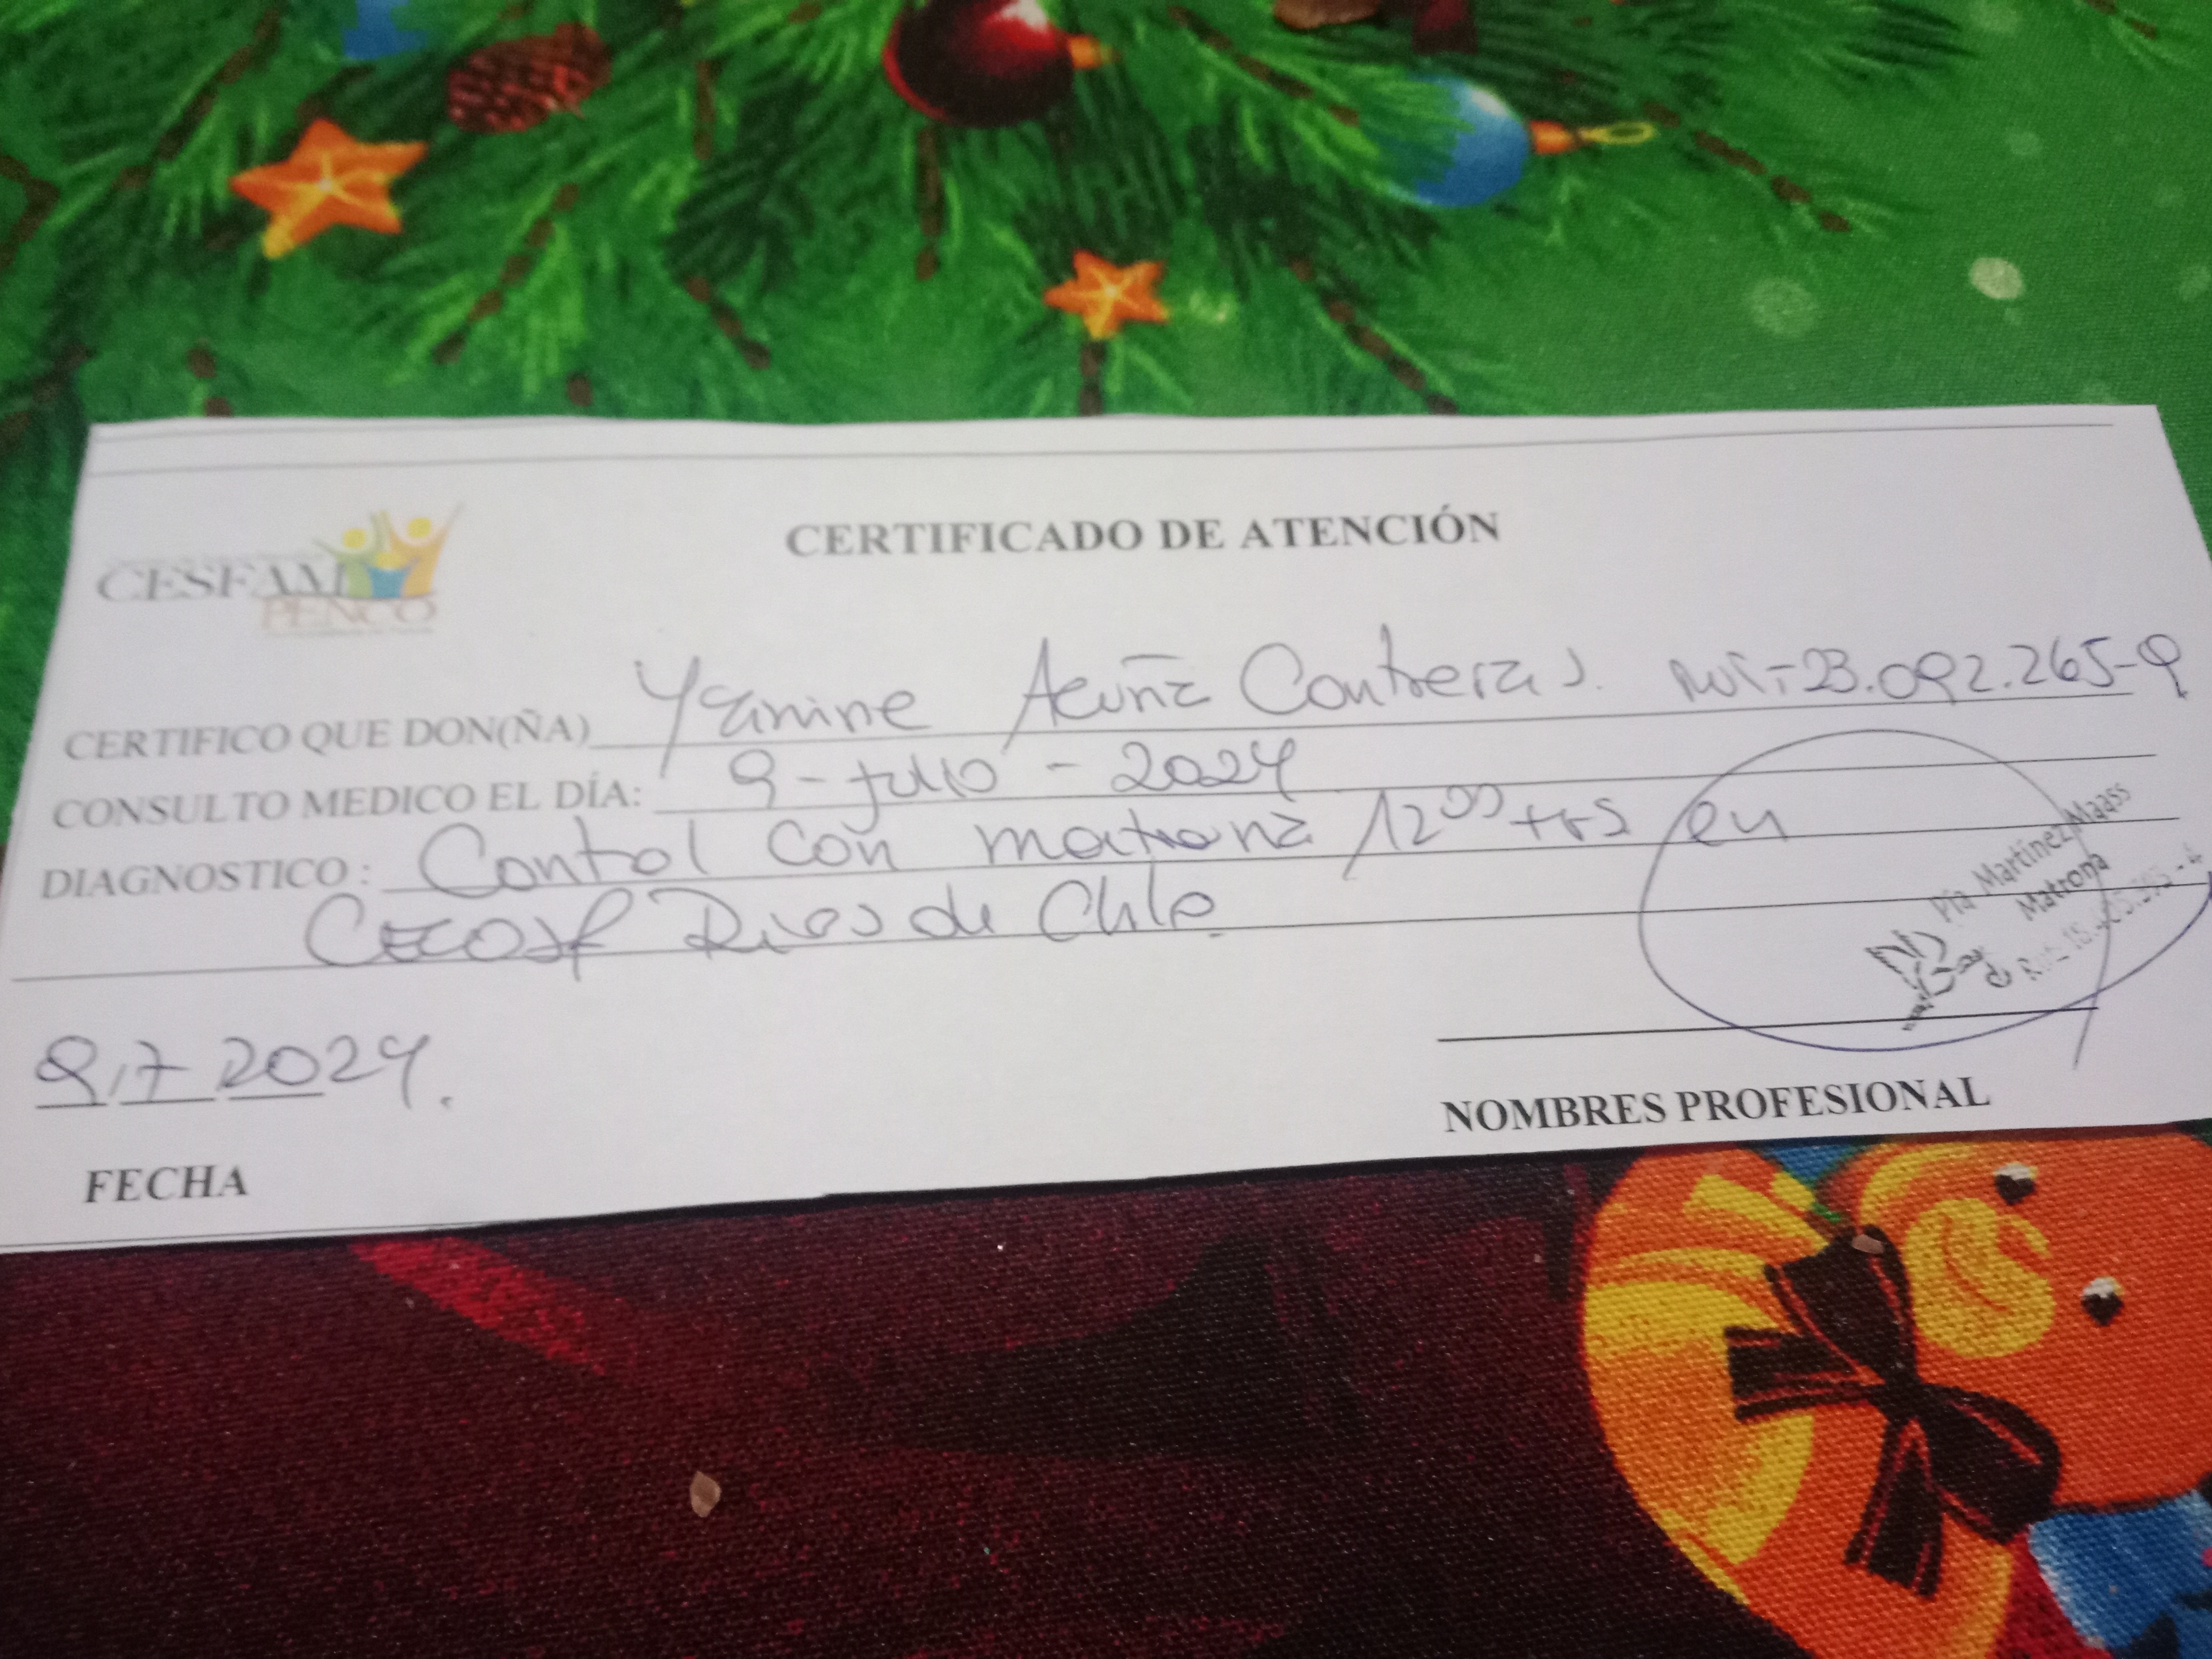 CERTIFICADO DE ATENCIÓN
CESFAM
PENCO
CERTIFICO QUE DON(ÑA) Yanine Acuña Contreras. RUT: 23.092.265-9
CONSULTO MEDICO EL DÍA: 9 - Julio - 2024
DIAGNOSTICO : Control con matrona 12:00 Hrs en
CECOSF Ríos de Chile.
Pía Martínez Maass
Matrona
9.7.2024.
NOMBRES PROFESIONAL
FECHA